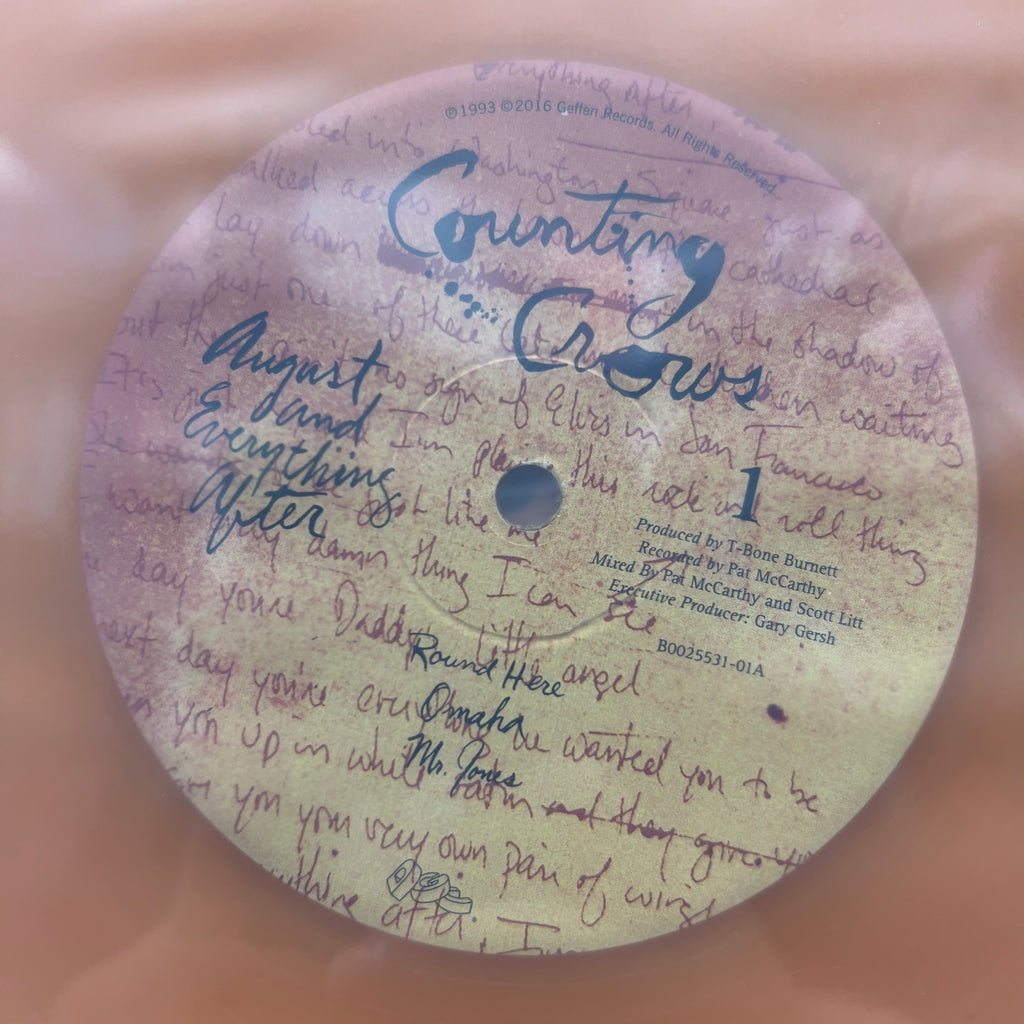 ℗1993 ©2016 Geffen Records. All Rights Reserved.
Counting
Crows
August
and
Everything
After
1
Produced by T-Bone Burnett
Recorded by Pat McCarthy
Mixed By Pat McCarthy and Scott Litt
Executive Producer: Gary Gersh
B0025531-01A
Round Here
Omaha
Mr. Jones
everything after
into Washington Square just as
across the cathedral
lay down in the shadow of
just one of these waiting
no sign of Elvis in San Francisco
It's just I'm this rock and roll thing
like me
want damn thing I can see
day you're Daddy's little angel
next day you're wanted you to be
you up in white satin and they give you
you your very own pair of wings
after